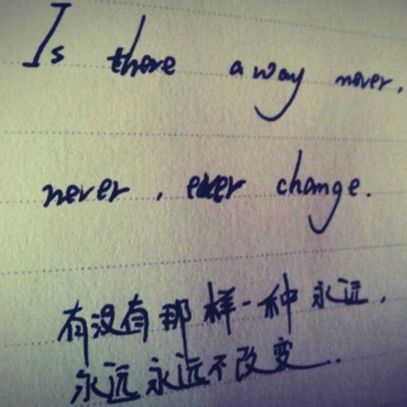 Is there a way never,
never, ever change.
有没有那样一种永远,
永远永远不改变..